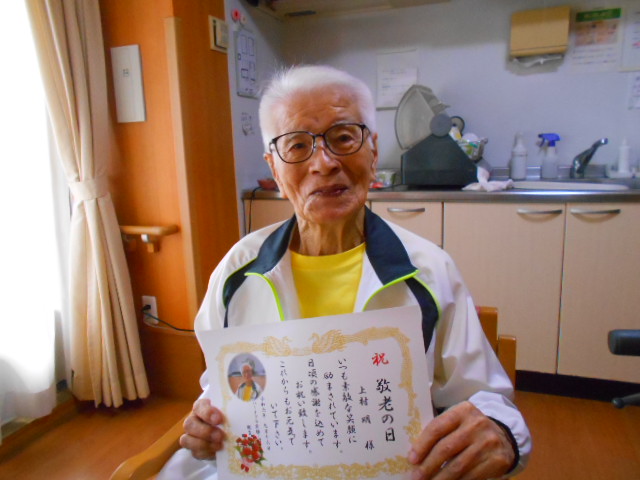 祝 敬老の日
上村 明 様
いつも素敵な笑顔に
励まされています。
日頃の感謝を込めて
お祝い致します。
これからもお元気で
いて下さい。